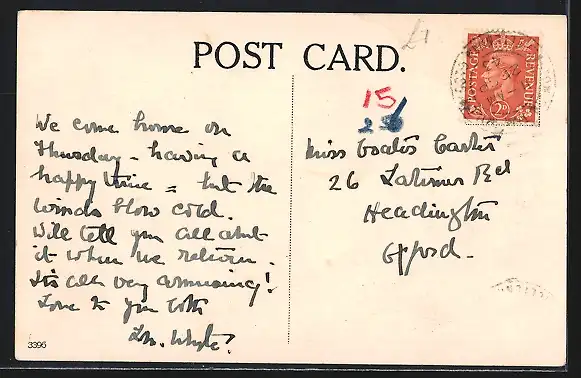 POST CARD.
£1
POSTAGE REVENUE
2D
15
25
We come home on
Thursday - having a
happy time = but the
winds blow cold.
Will tell you all abt
it when we return.
Its all very amusing!
Love to you both
Whyte
3396
Miss Carter
26 Latimer Rd
Headington
Oxford.